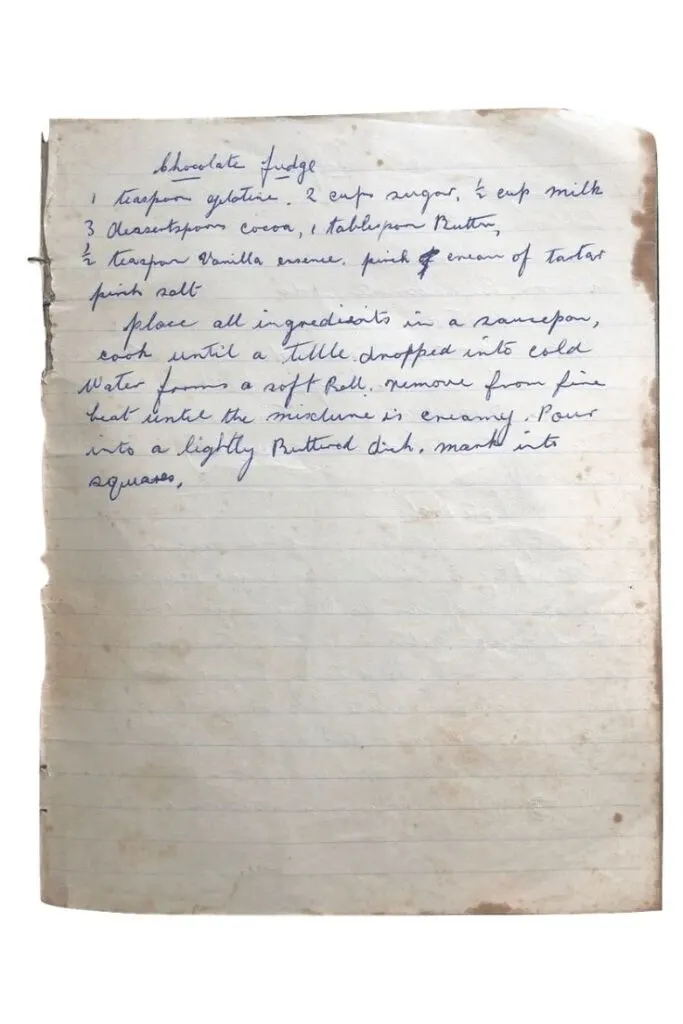 Chocolate fudge
1 teaspoon gelatine. 2 cups sugar, ½ cup milk
3 dessertspoons cocoa, 1 tablespoon Butter,
½ teaspoon Vanilla essence. pinch cream of tartar
pinch salt
place all ingredients in a saucepan,
cook until a little dropped into cold
Water forms a soft Ball. remove from fire
beat until the mixture is creamy. Pour
into a lightly Buttered dish. mark into
squares,